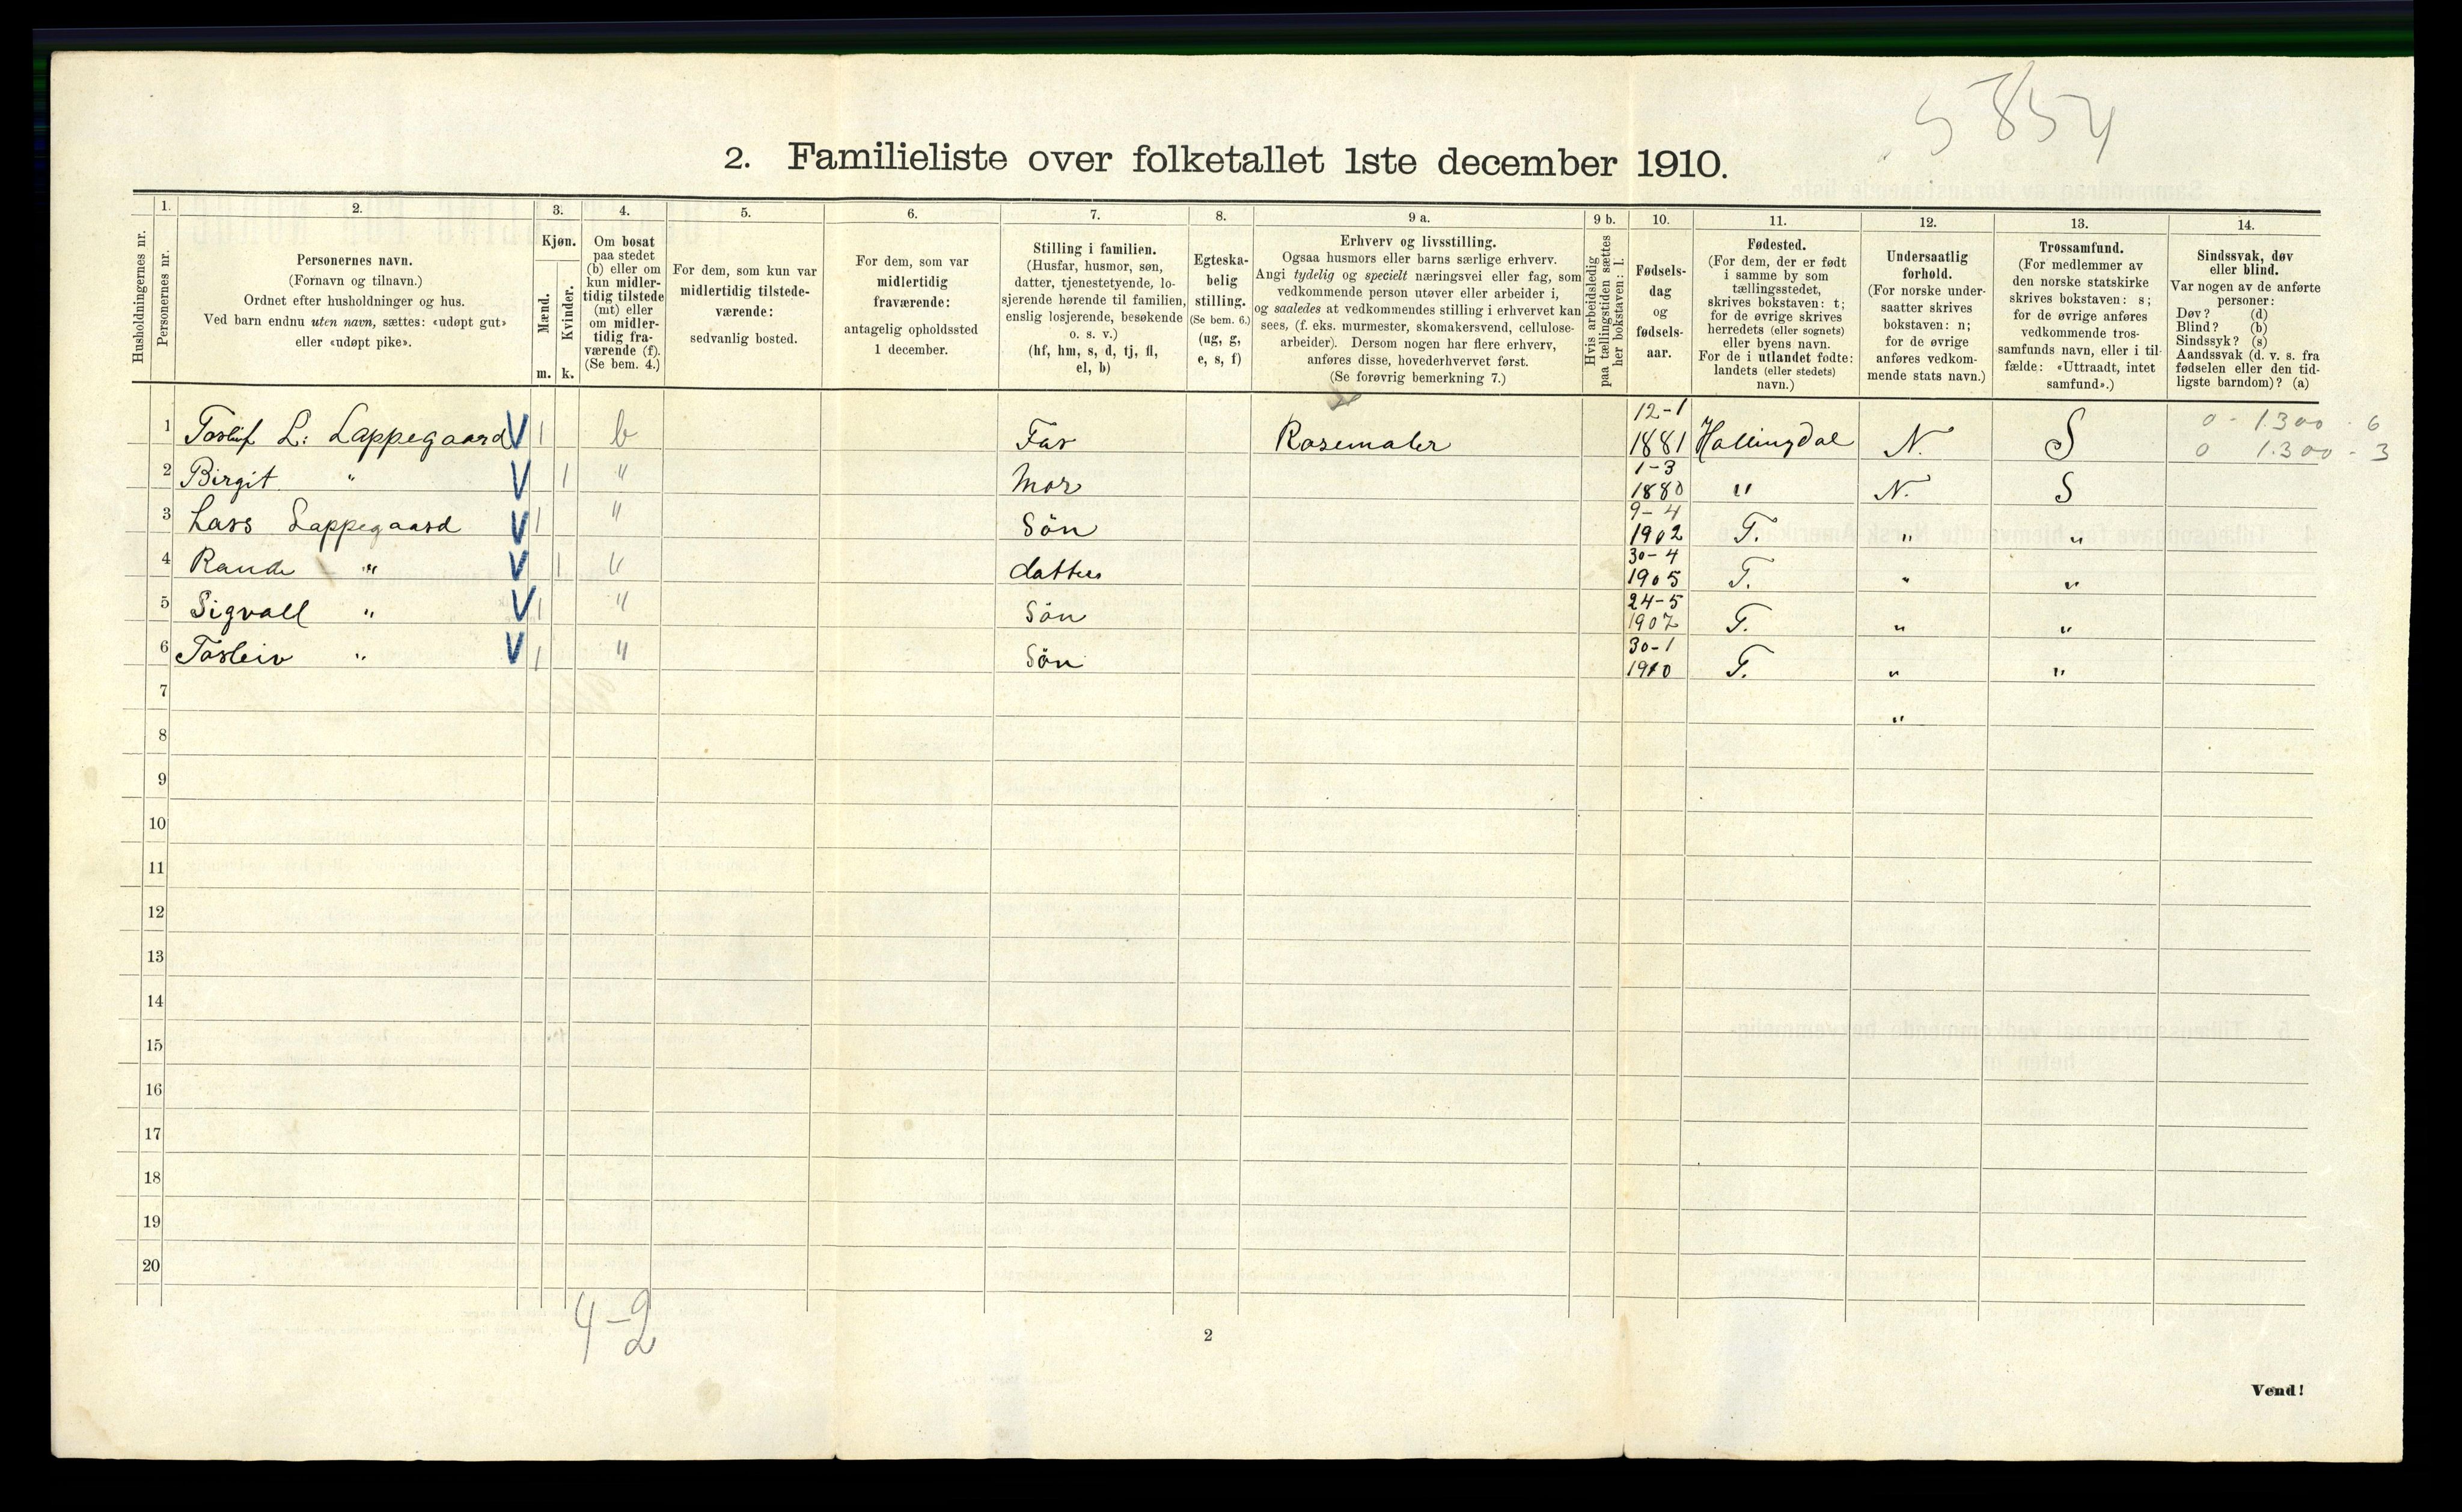 5854
2. Familieliste over folketallet 1ste december 1910.
Husholdningernes nr.
1.
Personernes nr.
2.
Personernes navn.
(Fornavn og tilnavn.)
Ordnet efter husholdninger og hus.
Ved barn endnu uten navn, sættes: «udøpt gut»
eller «udøpt pike».
3.
Kjøn.
Mænd.
Kvinder.
m. k.
4.
Om bosat
paa stedet
(b) eller om
kun midler-
tidig tilstede
(mt) eller
om midler-
tidig fra-
værende (f).
(Se bem. 4.)
5.
For dem, som kun var
midlertidig tilstede-
værende:
sedvanlig bosted.
6.
For dem, som var
midlertidig
fraværende:
antagelig opholdssted
1 december.
7.
Stilling i familien.
(Husfar, husmor, søn,
datter, tjenestetyende, lo-
sjerende hørende til familien,
enslig losjerende, besøkende
o. s. v.)
(hf, hm, s, d, tj, fl,
el, b)
8.
Egteska-
belig
stilling.
(Se bem. 6.)
(ug, g,
e, s, f)
9 a.
Erhverv og livsstilling.
Ogsaa husmors eller barns særlige erhverv.
Angi tydelig og specielt næringsvei eller fag, som
vedkommende person utøver eller arbeider i,
og saaledes at vedkommendes stilling i erhvervet kan
sees, (f. eks. murmester, skomakersvend, cellulose-
arbeider). Dersom nogen har flere erhverv,
anføres disse, hovederhvervet først.
(Se forøvrig bemerkning 7.)
9 b.
Hvis arbeidsledig
paa tællingstiden sættes
her bokstaven: l.
10.
Fødsels-
dag
og
fødsels-
aar.
11.
Fødested.
(For dem, der er født
i samme by som
tællingsstedet,
skrives bokstaven: t;
for de øvrige skrives
herredets (eller sognets)
eller byens navn.
For de i utlandet fødte:
landets (eller stedets)
navn.)
12.
Undersaatlig
forhold.
(For norske under-
saatter skrives
bokstaven: n;
for de øvrige
anføres vedkom-
mende stats navn.)
13.
Trossamfund.
(For medlemmer av
den norske statskirke
skrives bokstaven: s;
for de øvrige anføres
vedkommende tros-
samfunds navn, eller i til-
fælde: «Uttraadt, intet
samfund».)
14.
Sindssvak, døv
eller blind.
Var nogen av de anførte
personer:
Døv? (d)
Blind? (b)
Sindssyk? (s)
Aandssvak (d. v. s. fra
fødselen eller den tid-
ligste barndom)? (a)
1 L: Lappegaard V 1 b Far Rosemaler 12-1 1881 Hallingdal N. S 0 - 1.300 - 6
0 1.300 - 3
2 Birgit " V 1 " Mor 1-3 1880 " N. S
3 Lars Lappegaard V 1 " Sön 9-4 1902 T. " "
4 " V 1 " datter 30-4 1905 T. " "
5 Sigvall " V 1 " Sön 24-5 1907 T. " "
6 Torleiv " V 1 " Sön 30-1 1910 T. " "
7 "
8
9
10
11
12
13
14
15
16
17
18
19
20
4-2
2
Vend!